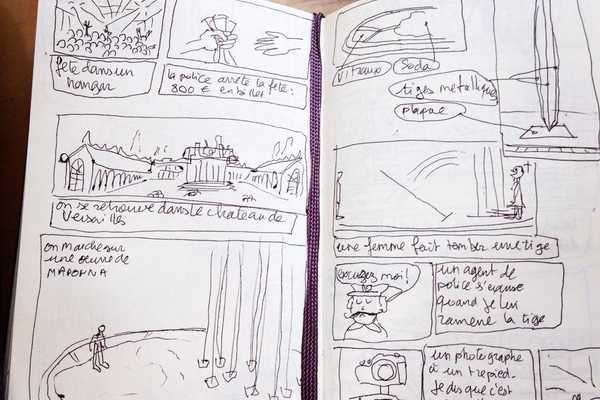 fête dans un
hangar
la police arrête la fête:
800 € en billet
on se retrouve dans le chateau de
Versailles
on marche sur
une œuvre de
MADONNA
vitraux
Soda
tiges metalliques
plaque
une femme fait tomber une tige
excusez moi!
un agent de
police s'excuse
quand je lui
ramène la tige
un photographe
a un trépied.
Je dis que c'est